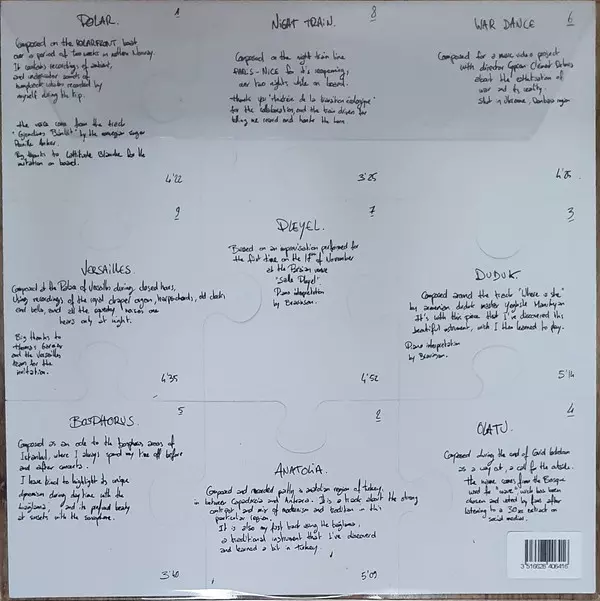 POLAR. 1
Composed on the POLARFRONT boat
over a period of two weeks in northern Norway.
It contains recordings of ambient,
and underwater sounds of
humpback whales recorded by
myself during the trip.
The voice comes from the track
by the norwegian singer
Big thanks to Latitude Blanche for the
invitation on board.
4'22
NIGHT TRAIN. 8
Composed on the night train line
PARIS - NICE for it's reopening,
over two nights, while on board.
Thanks you "Ministère de la transition écologique"
for the collaboration, and the train driver for
telling me and the horn.
3'25
WAR DANCE 6
Composed for a music video project
with director Cyprien Clément-Delmas
about the esthetisation of
war and its reality.
Shot in Ukraine, Donbass region
4'25
9
VERSAILLES.
Composed at the Palace of Versailles during closed hours,
Using recordings of the royal chapel organ, harpsichords, old clocks
and bells, and all the noises one
hears only at night.
Big thanks to
Thomas
and the Versailles
team for the
invitation.
4'35
7
PLEYEL.
Based on an improvisation performed for
the first time on the 17th of November
at the Parisian venue
"Salle Pleyel"
Piano interpretation
by Bearison.
4'52
3
DUDUK
Composed around the track "Where is she"
by armenian duduk master
It's with this piece that I've discovered this
beautiful instrument, wich I then learned to play.
Piano interpretation
by Bearison.
5'14
BOSPHORUS. 5
Composed as an ode to the bosphorus areas of
Istanbul, where I always spend my time off before
and after concerts.
I have tried to highlight its unique
dynamism during day time with the
bağlama, and its profound beauty
at sunsets with the saxophone.
3'40
2
ANATOLIA.
Composed and recorded partly in anatolian region of turkey,
in between Cappadocia and Ankara. It is a track about the strong
contrast and mix of modernism and tradition in this
particular region.
It is also my first track using the bağlama,
a traditional instrument that I've discovered
and learned a bit in turkey.
5'09
4
OLATU.
Composed during the end of Covid lockdown
as a way out, a call for the outside.
The name comes from the Basque
word for "wave", wich has been
chosen and voted by fans after
listening to a 30s extract on
social medias.
3 516628 406416